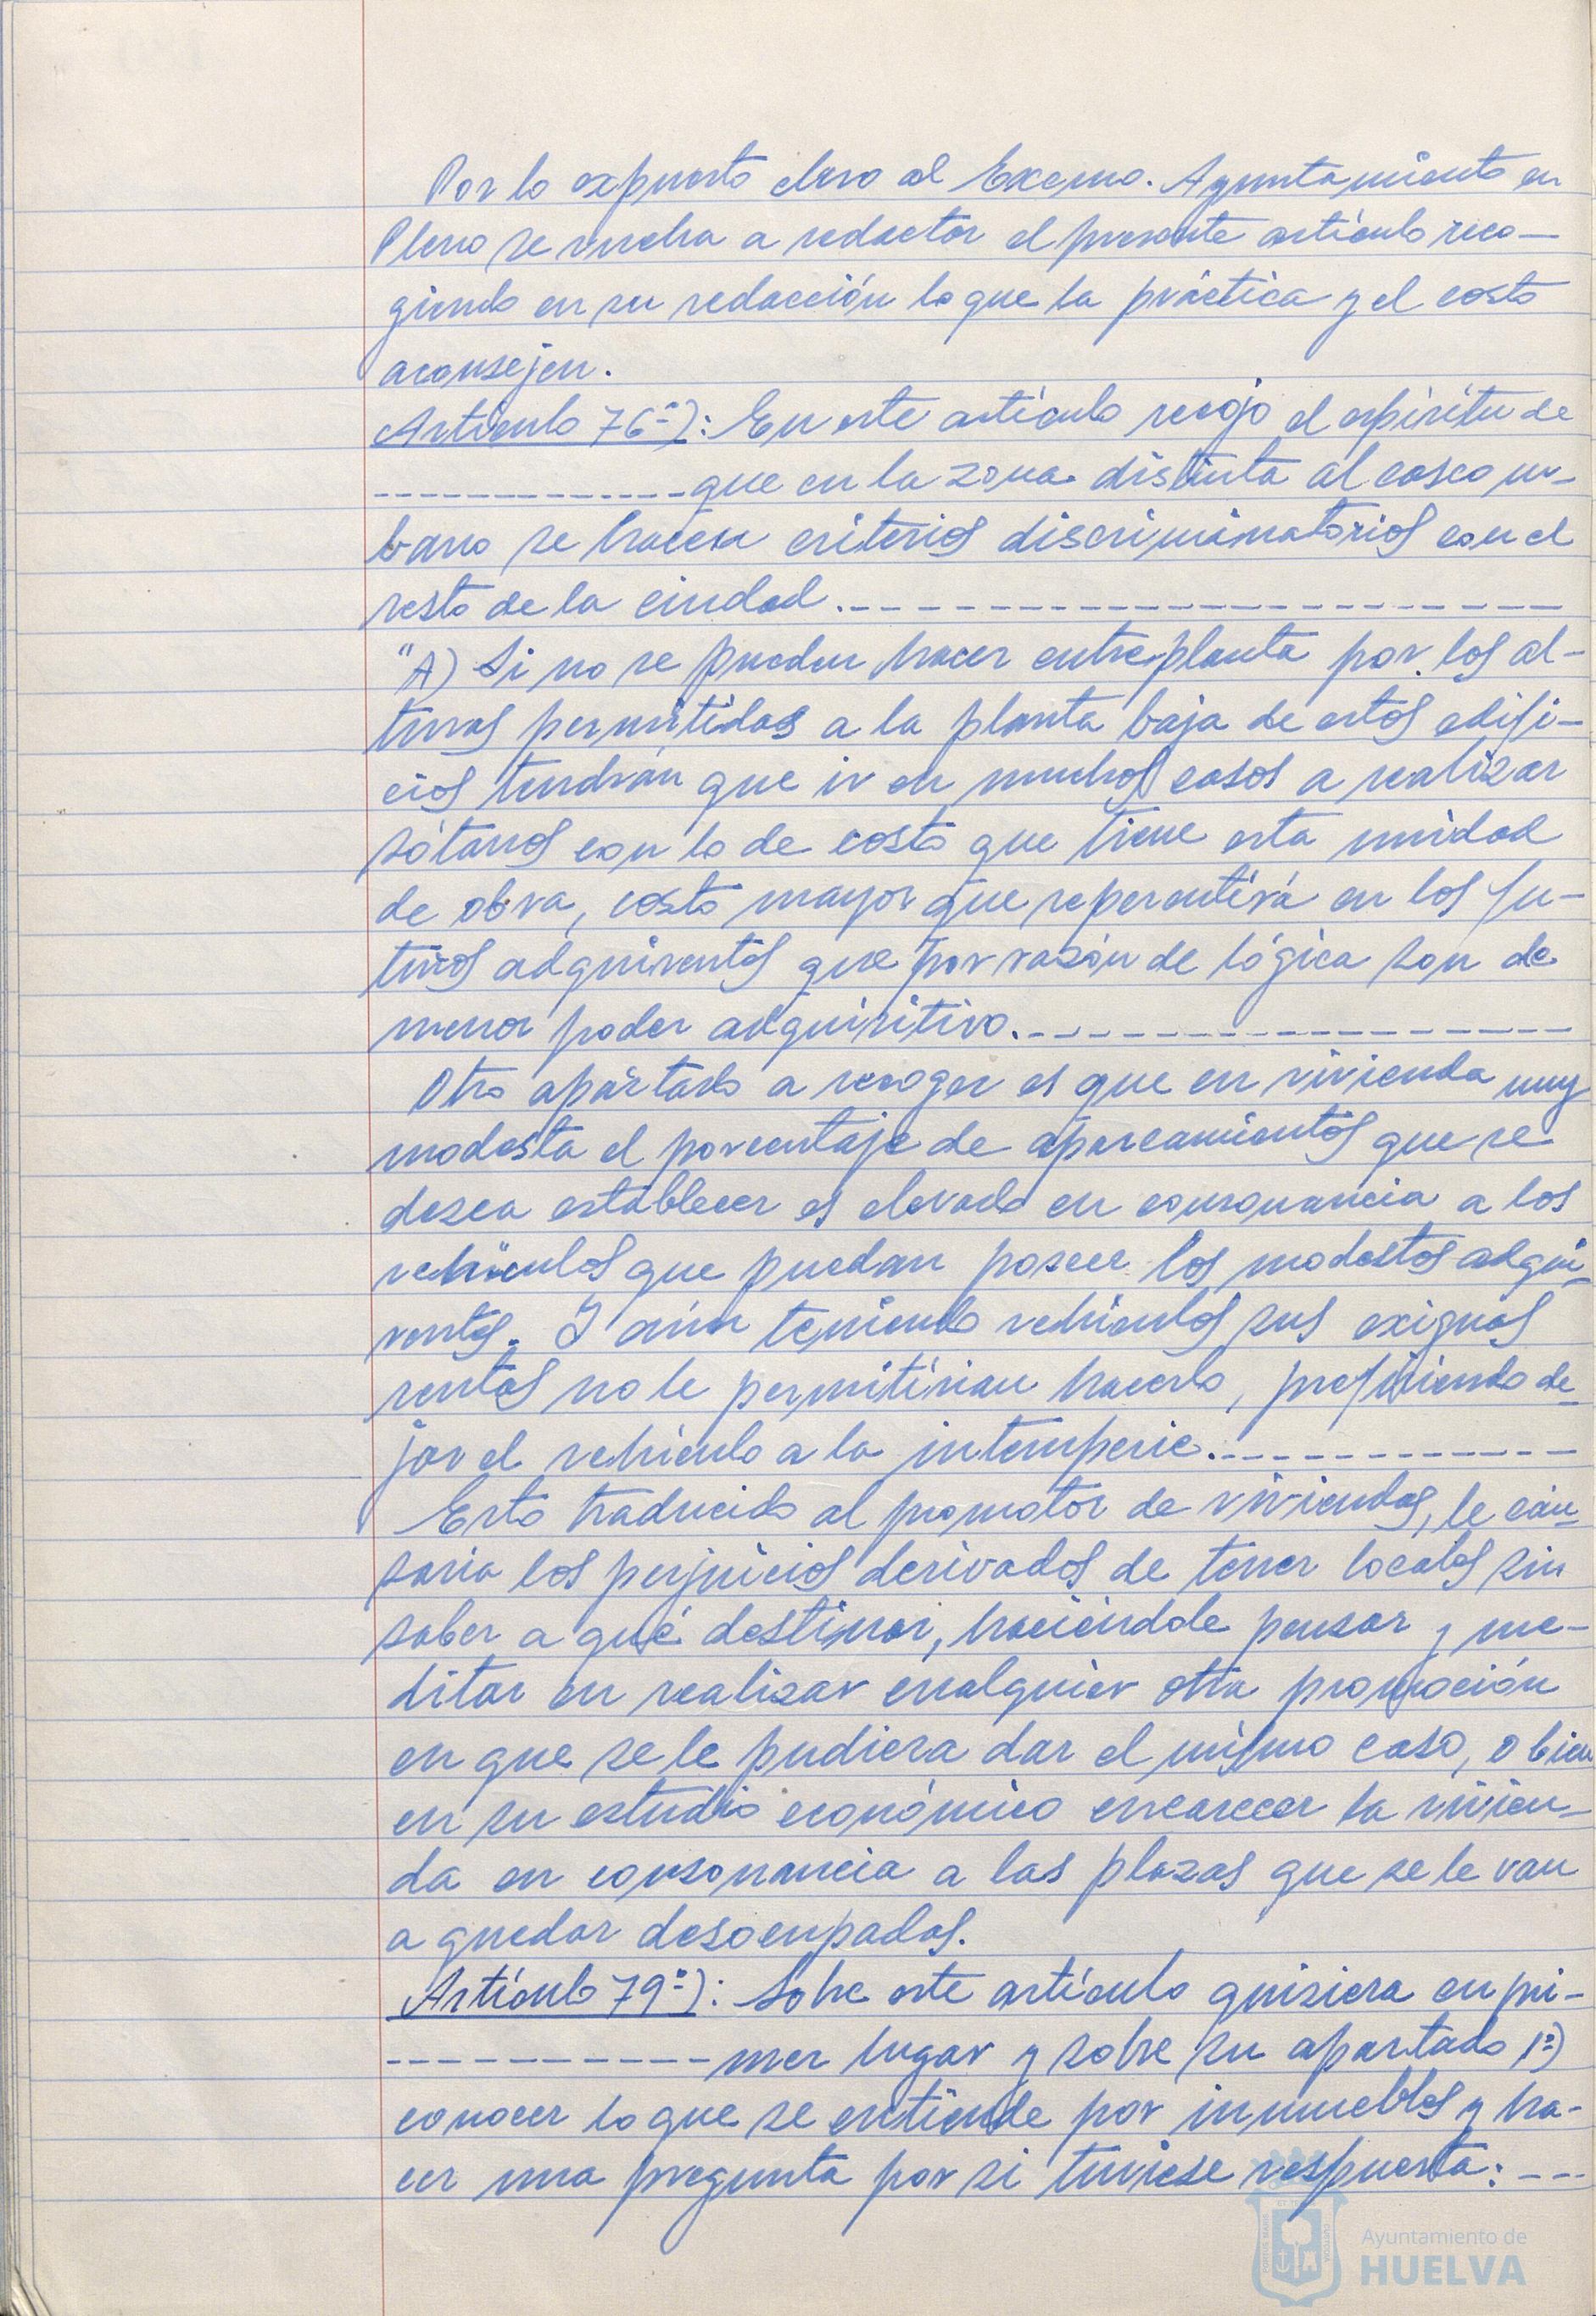 Por lo expuesto elevo al Excmo. Ayuntamiento en
Pleno se vuelva a redactar el presente artículo reco-
giendo en su redacción lo que la práctica y el costo
aconsejen.
Artículo 76º): En este artículo recojo el espíritu de
------------- que en la zona distinta al casco ur-
bano se hacen criterios discriminatorios con el
resto de la ciudad.-----------------------
"A) Si no se pueden hacer entreplanta por los al-
turas permitidas a la planta baja de estos edifi-
cios tendrán que ir en muchos casos a realizar
sótanos con lo de costo que tiene esta unidad
de obra, costo mayor que repercutirá en los fu-
turos adquirentes que por razón de lógica son de
menor poder adquisitivo.-----------------
Otro apartado a recoger es que en vivienda muy
modesta el porcentaje de aparcamientos que se
desea establecer es elevado en consonancia a los
vehículos que puedan poseer los modestos adqui-
rentes. Y aún teniendo vehículos sus exiguas
rentas no le permitirian hacerlo, prefiriendo de-
jar el vehículo a la intemperie.------------
Esto traducido al promotor de viviendas, le cau-
saria los perjuicios derivados de tener locales sin
saber a qué destinar, haciéndole pensar y me-
ditar en realizar cualquier otra promoción
en que se le pudiera dar el mismo caso, o bien
en su estudio económico encarecer la vivien-
da en consonancia a las plazas que se le van
a quedar desocupadas.
Artículo 79º): Sobre este artículo quisiera en pri-
----------- mer lugar y sobre su apartado 1º)
conocer lo que se entiende por inmuebles y ha-
cer una pregunta por si tuviese respuesta: ---
Ayuntamiento de
HUELVA